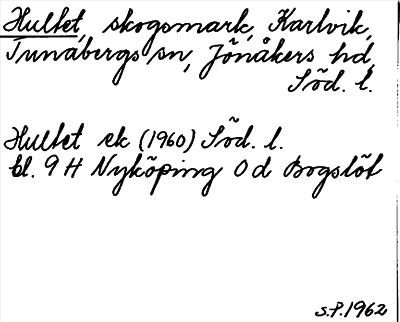 Hultet, skogsmark, Karlvik,
Tunabergs sn, Jönåkers hd,
Söd. l.
Hultet ek (1960) Söd. l.
bl. 9 H Nyköping 0 d Bogslöt
S.P. 1962